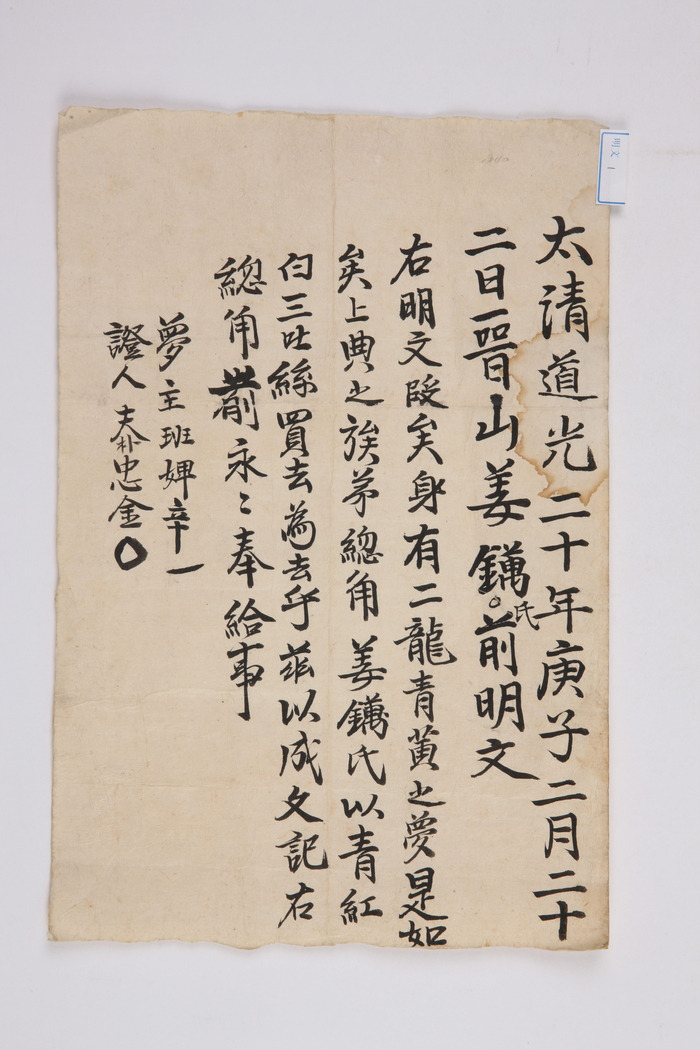 明文 1
太清道光二十年庚子二月二十
二日晉山姜鏋氏前明文
右明文段矣身有二龍青黃之夢是如
矣上典之族弟總角姜鏋氏以青紅
白三吐絲買去為去乎茲以成文記右
總角前永〻奉給事
夢主班婢辛一
證人夫朴忠金〇